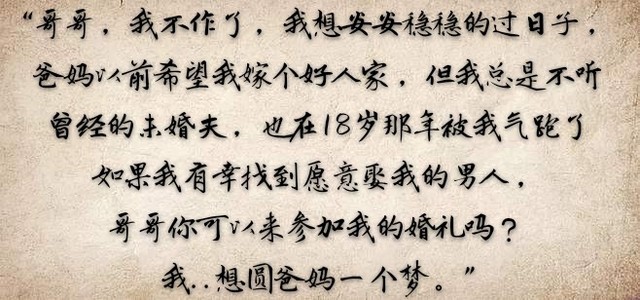 “哥哥，我不作了，我想安安稳稳的过日子，
爸妈以前希望我嫁个好人家，但我总是不听
曾经的未婚夫，也在18岁那年被我气跑了
如果我有幸找到愿意娶我的男人，
哥哥你可以来参加我的婚礼吗？
我..想圆爸妈一个梦。”